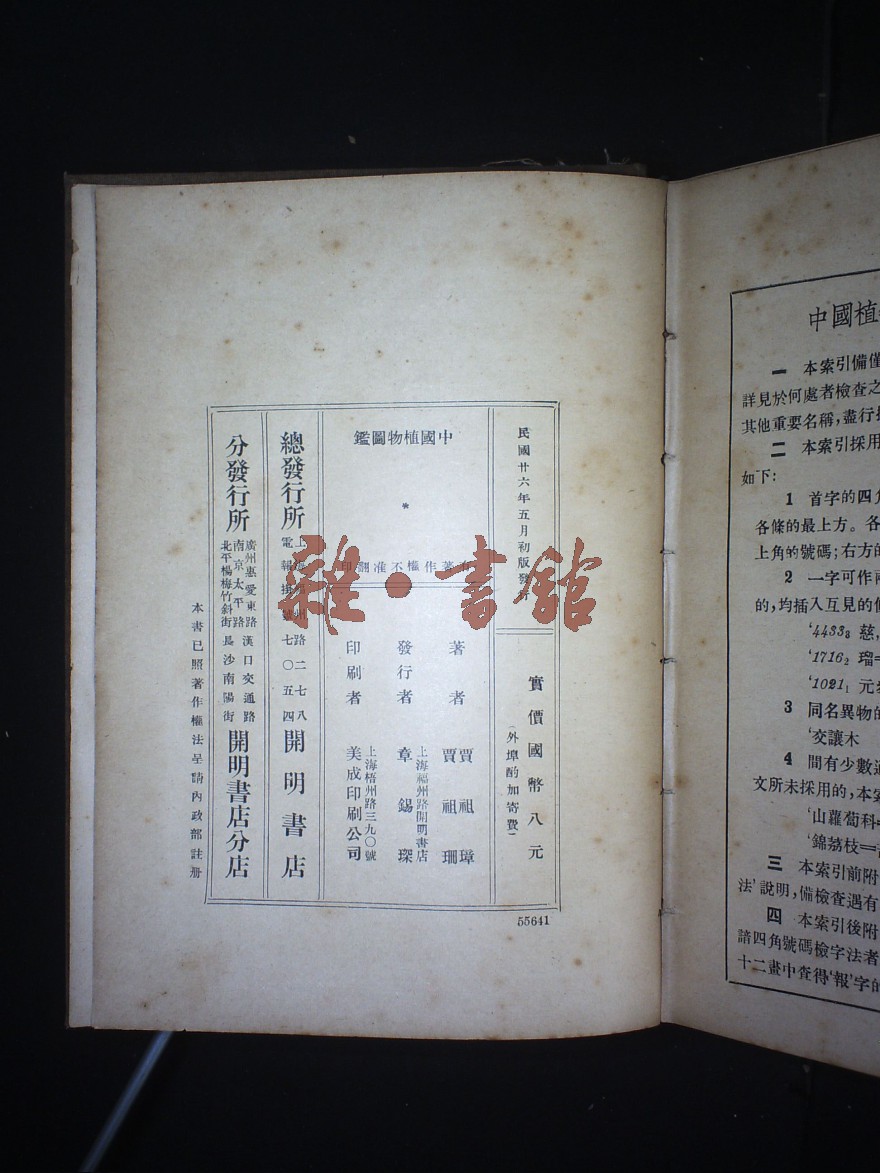 民國廿六年五月初版發行
實價國幣八元
(外埠酌加寄費)
中國植物圖鑑
*
有著作權不准翻印
著者
賈祖璋
賈祖珊
發行者
上海福州路開明書店
章錫琛
印刷者
上海梧州路三九〇號
美成印刷公司
總發行所
上海福州路二七八
電報掛號七〇五四
開明書店
分發行所
廣州惠愛東路 漢口交通路
南京太平路
北平楊梅竹斜街 長沙南陽街
開明書店分店
本書已照著作權法呈請內政部註冊
55641
雜·書館
中國植
一 本索引備僅
詳見於何處者檢查之
其他重要名稱,盡行
二 本索引採用
如下:
1 首字的四角
各條的最上方。各
上角的號碼;右方的
2 一字可作兩
的,均插入互見的
'4433₈ 慈,
'1716₂ 瑠=
'1021₁ 元
3 同名異物的
'交讓木
4 間有少數
文所未採用的,本索
'山蘿蔔科
'錦荔枝=
三 本索引前附
法'說明,備檢查遇有
四 本索引後附
諳四角號碼檢字法者
十二畫中查得'報'字的